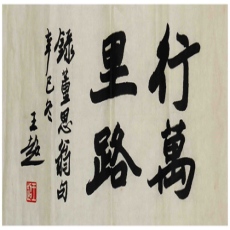 行萬
里路
錄董思翁句
辛巳冬
王越